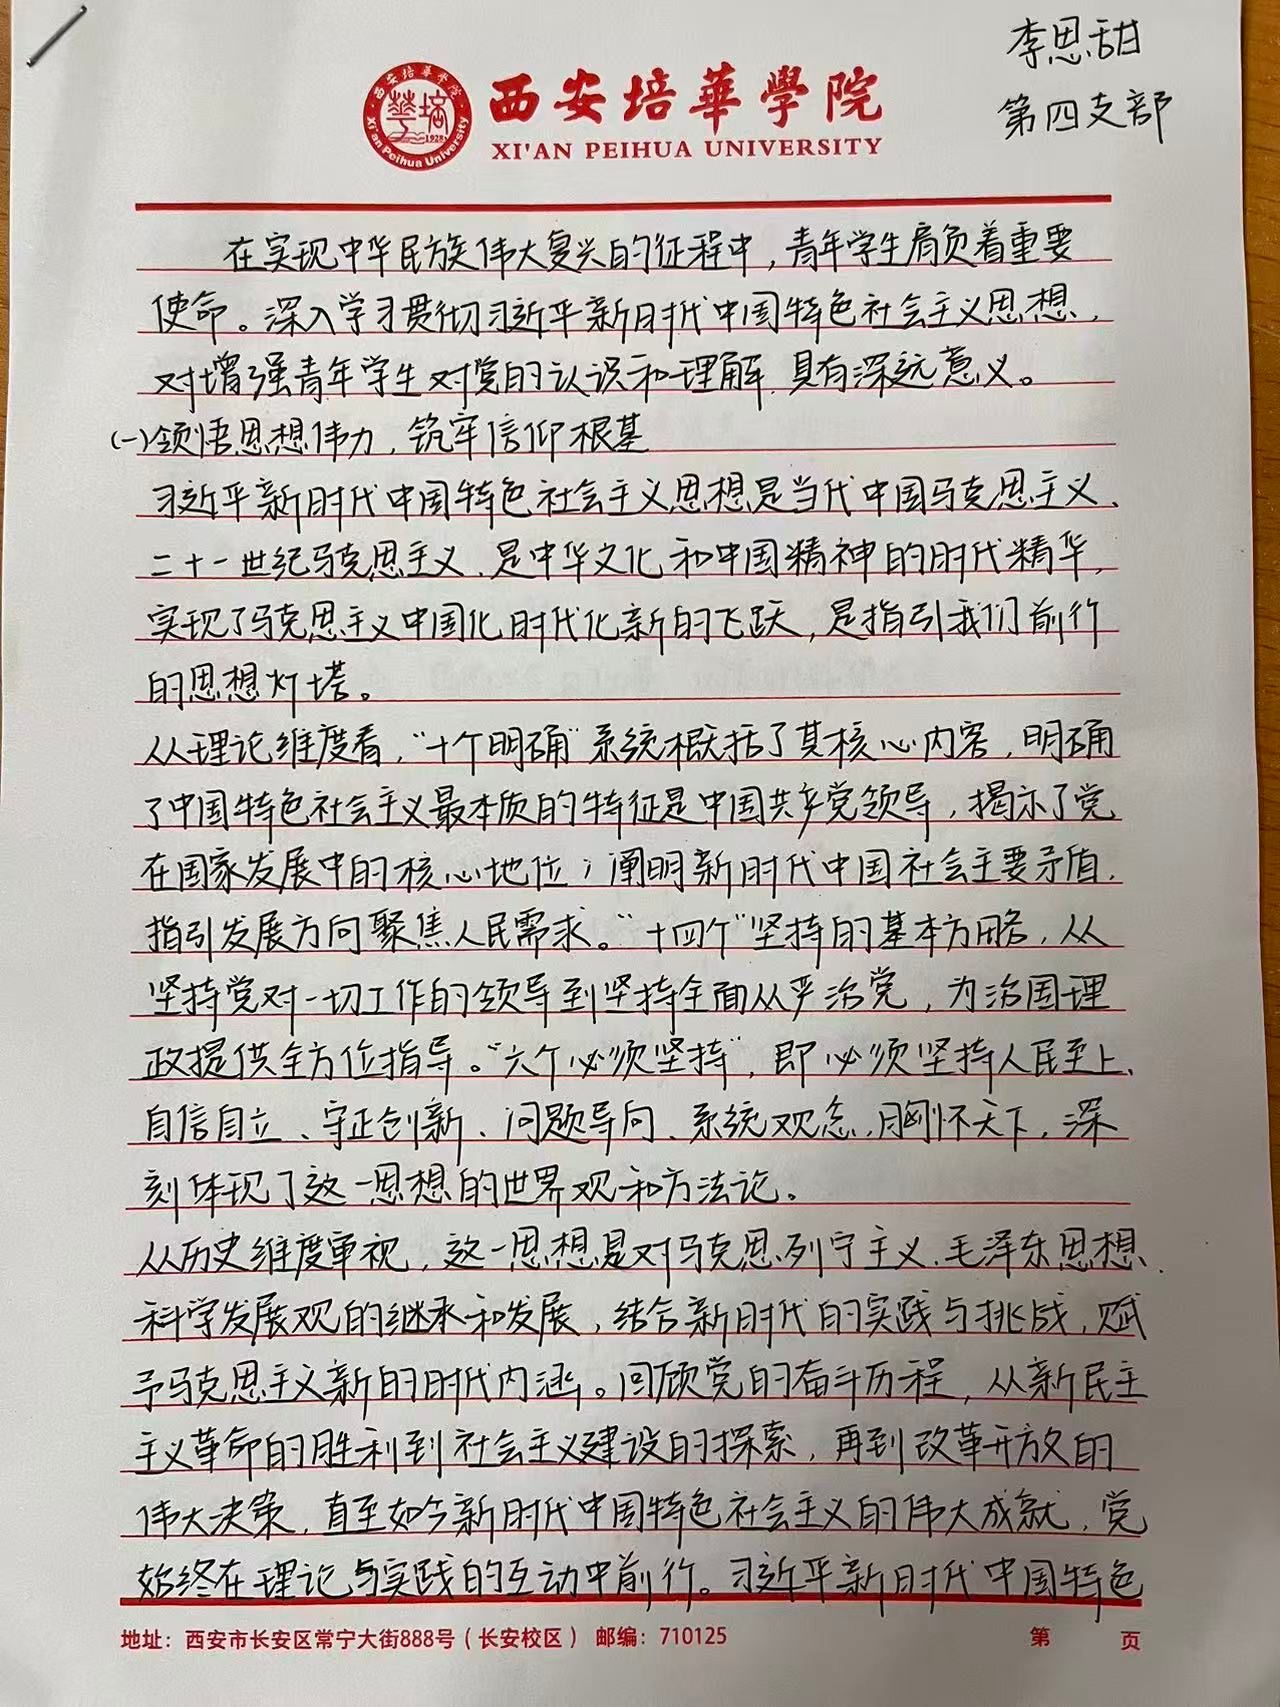 李思甜
第四支部
西安培華學院
XI'AN PEIHUA UNIVERSITY
西安培华学院
華培
1928
Xi'an Peihua University
在实现中华民族伟大复兴的征程中，青年学生肩负着重要
使命。深入学习贯彻习近平新时代中国特色社会主义思想，
对增强青年学生对党的认识和理解，具有深远意义。
(一)领悟思想伟力，筑牢信仰根基
习近平新时代中国特色社会主义思想是当代中国马克思主义、
二十一世纪马克思主义，是中华文化和中国精神的时代精华，
实现了马克思主义中国化时代化新的飞跃，是指引我们前行
的思想灯塔。
从理论维度看，“十个明确”系统概括了其核心内容，明确
了中国特色社会主义最本质的特征是中国共产党领导，揭示了党
在国家发展中的核心地位；阐明新时代中国社会主要矛盾，
指引发展方向聚焦人民需求。“十四个”坚持的基本方略，从
坚持党对一切工作的领导到坚持全面从严治党，为治国理
政提供全方位指导。“六个必须坚持”，即必须坚持人民至上、
自信自立、守正创新、问题导向、系统观念，胸怀天下，深
刻体现了这一思想的世界观和方法论。
从历史维度审视，这一思想是对马克思列宁主义、毛泽东思想、
科学发展观的继承和发展，结合新时代的实践与挑战，赋
予马克思主义新的时代内涵。回顾党的奋斗历程，从新民主
主义革命的胜利到社会主义建设的探索，再到改革开放的
伟大决策，直至如今新时代中国特色社会主义的伟大成就，党
始终在理论与实践的互动中前行。习近平新时代中国特色
地址：西安市长安区常宁大街888号（长安校区） 邮编：710125
第 页